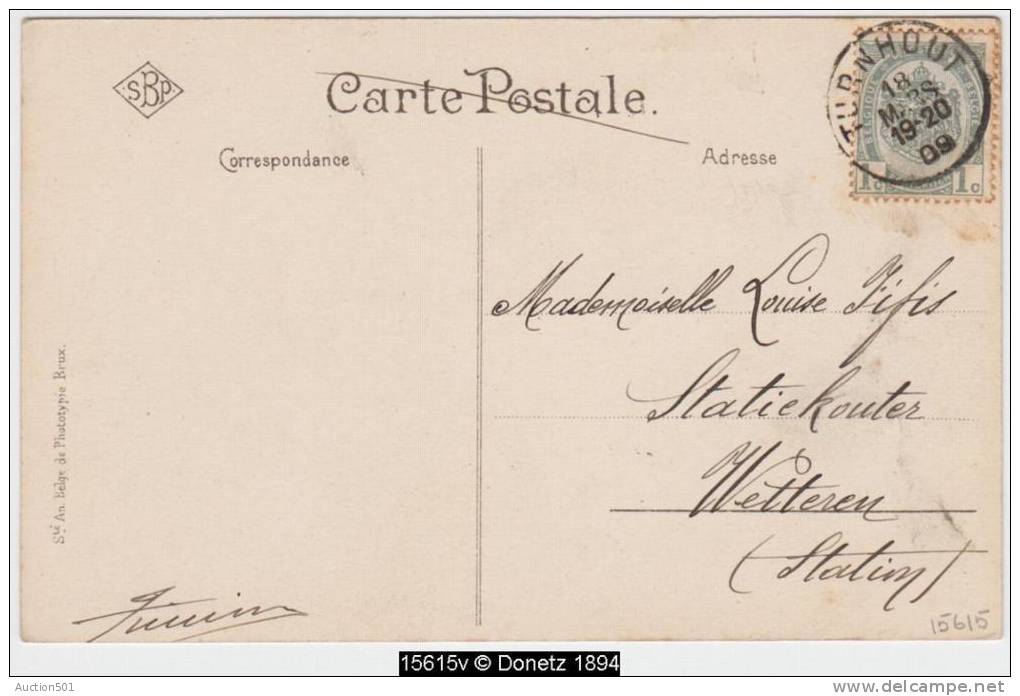 SBP
Carte Postale.
Correspondance
Adresse
TURNHOUT
18
MARS
19-20
09
BELGIQUE BELGIË
1c 1c
Mademoiselle Louise
Statiekouter
Wetteren
(Station)
Sté An. Belge de Phototypie Brux.
15615
15615v © Donetz 1894
Auction501
delcampe.net